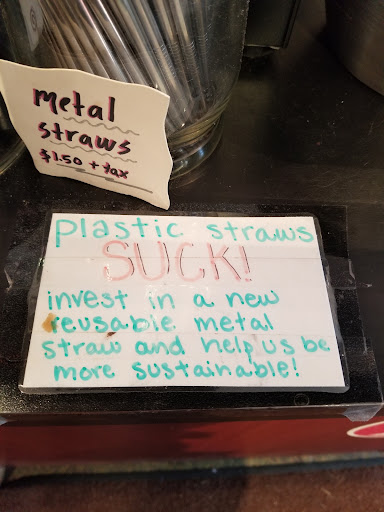 metal
straws
$1.50 + tax
plastic straws
SUCK!
invest in a new
reusable metal
straw and help us be
more sustainable!